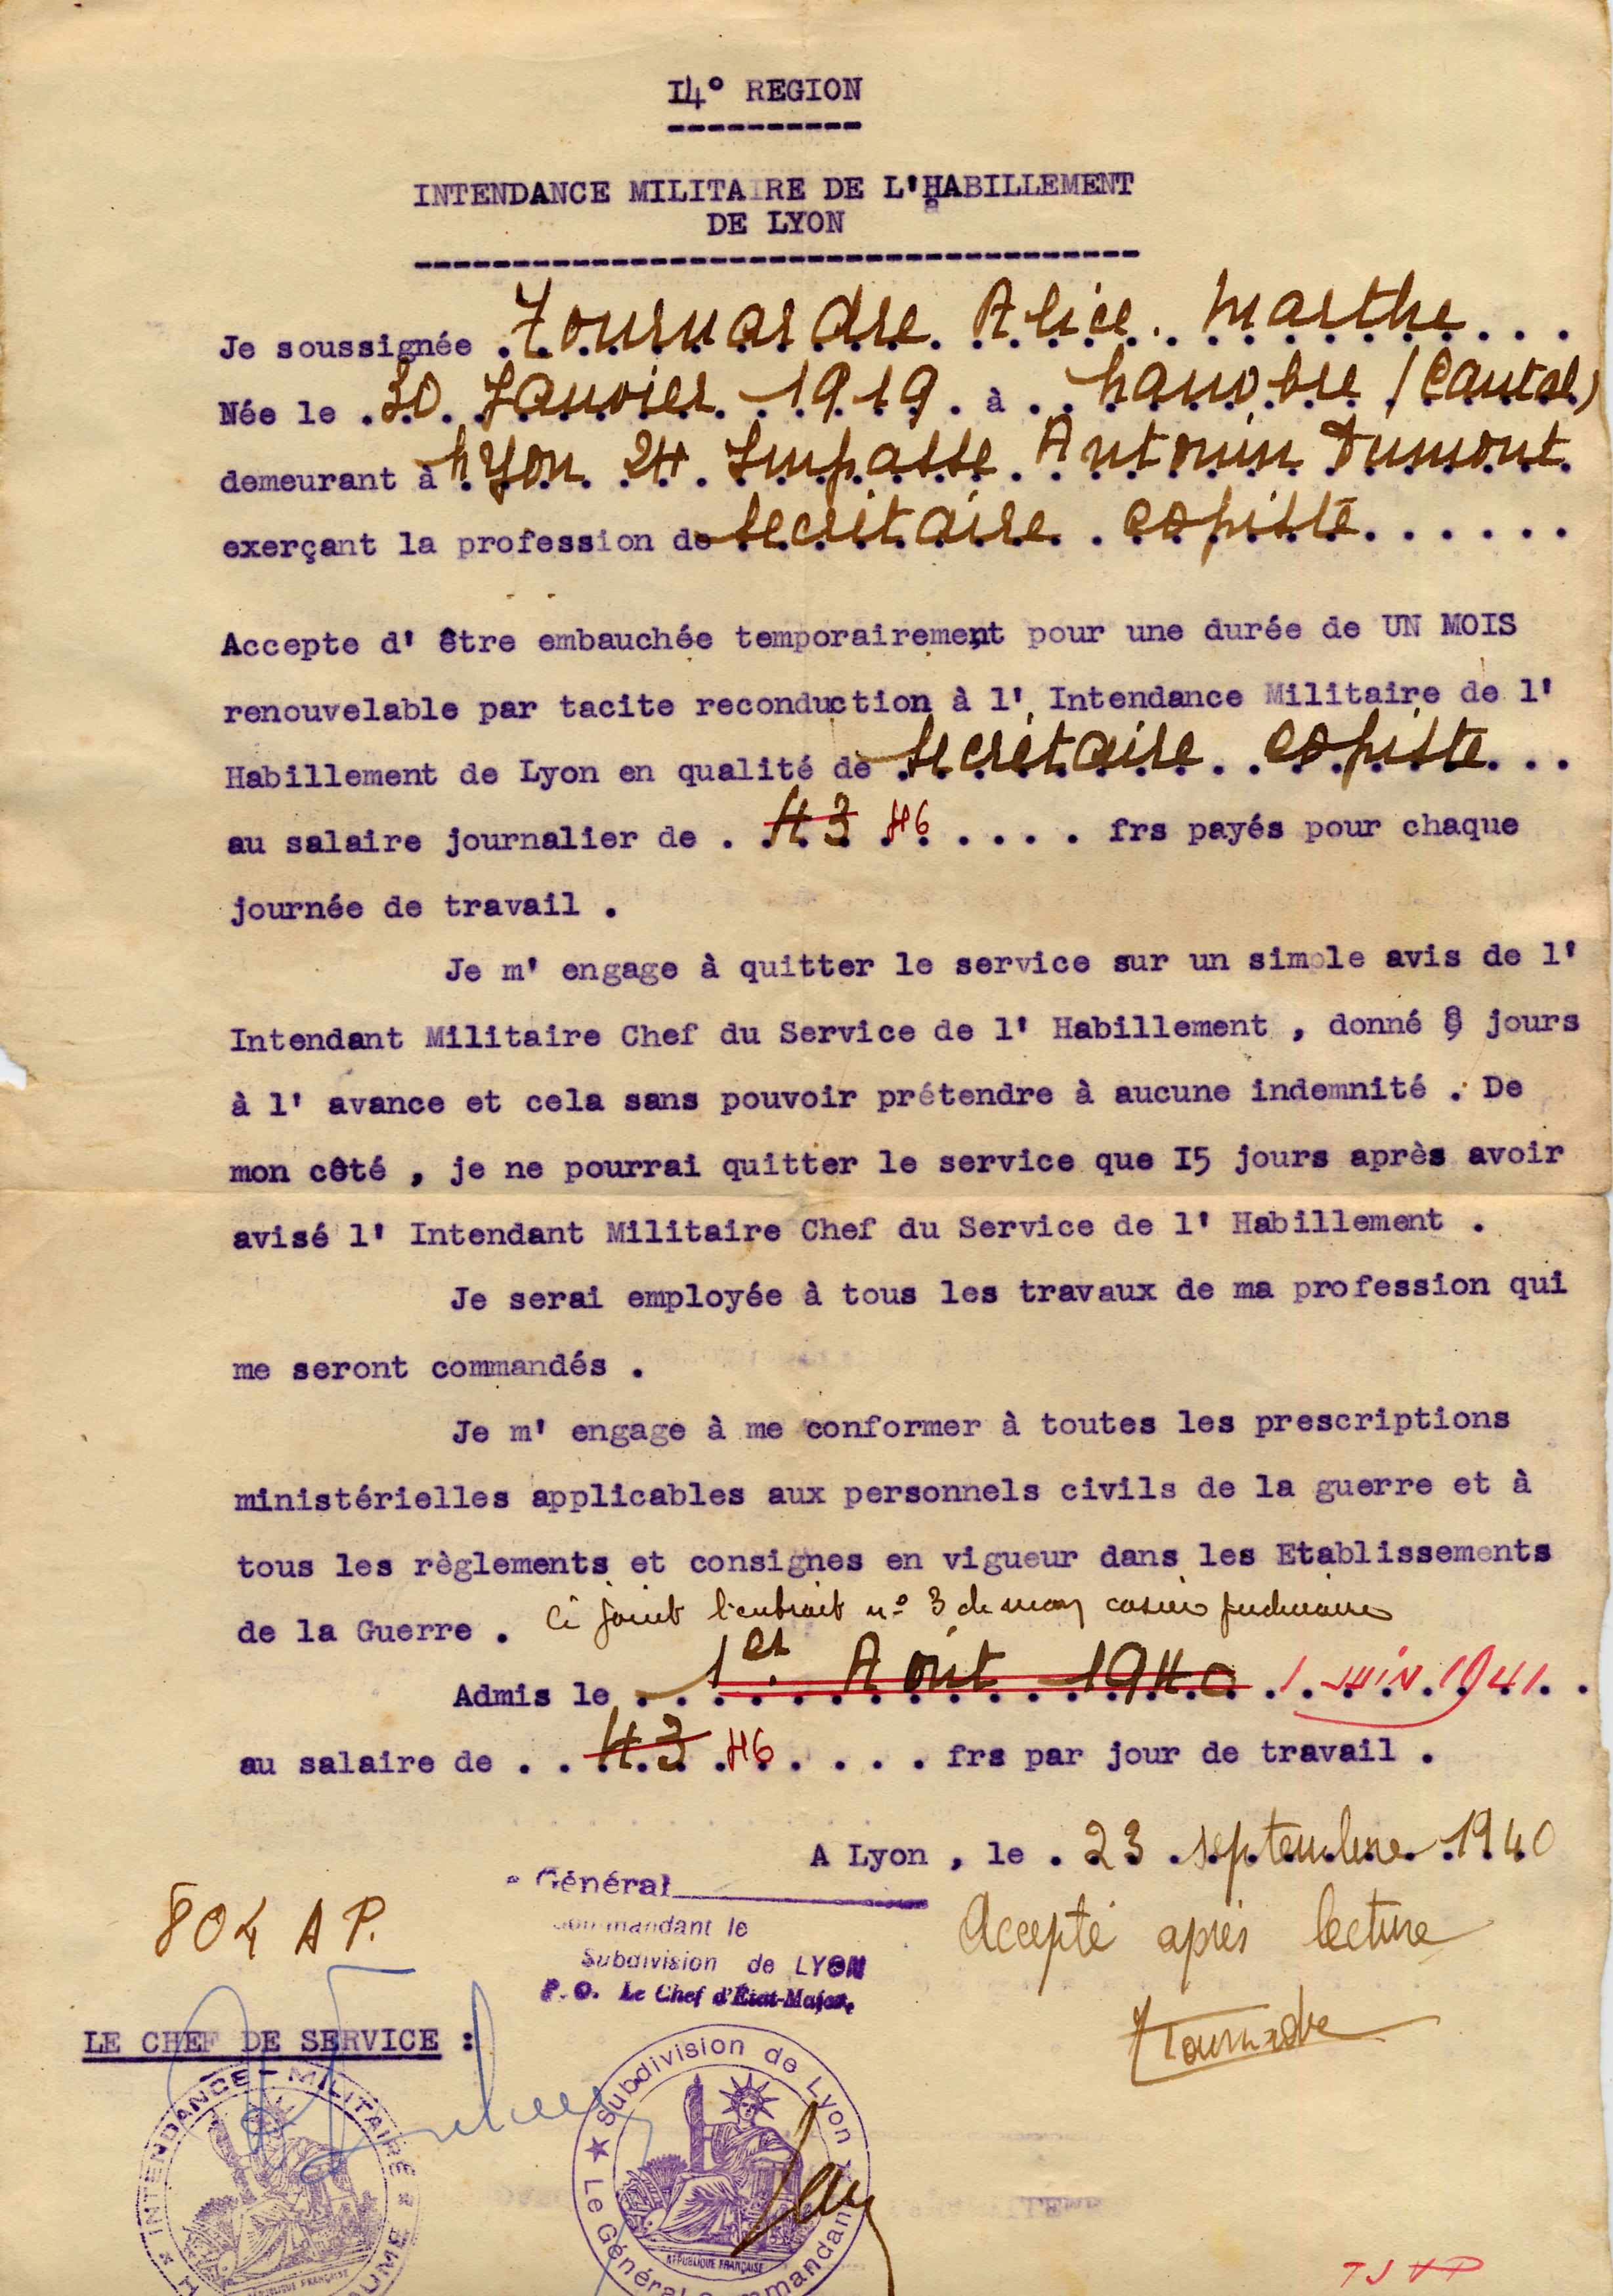 I4° REGION
INTENDANCE MILITAIRE DE L'HABILLEMENT
DE LYON
Je soussignée Tournadre Alice. Marthe...
Née le .30. Janvier. 1919. à .. Lanobre (Cantal)
demeurant à Lyon 24. Impasse. Antonin Dumont.
exerçant la profession de secrétaire. copiste......
Accepte d' être embauchée temporairement pour une durée de UN MOIS
renouvelable par tacite reconduction à l' Intendance Militaire de l'
Habillement de Lyon en qualité de secrétaire.. copiste...
au salaire journalier de . 43 46 .... frs payés pour chaque
journée de travail .
Je m' engage à quitter le service sur un simple avis de l'
Intendant Militaire Chef du Service de l' Habillement , donné 8 jours
à l' avance et cela sans pouvoir prétendre à aucune indemnité . De
mon côté , je ne pourrai quitter le service que I5 jours après avoir
avisé l' Intendant Militaire Chef du Service de l' Habillement .
Je serai employée à tous les travaux de ma profession qui
me seront commandés .
Je m' engage à me conformer à toutes les prescriptions
ministérielles applicables aux personnels civils de la guerre et à
tous les règlements et consignes en vigueur dans les Etablissements
de la Guerre . Ci joint l'extrait n° 3 de mon casier judiciaire
Admis le .. 1er. Août 1940 1 JUIN 1941..
au salaire de .. 43 46 .... frs par jour de travail .
A Lyon , le . 23 septembre 1940
Général
Commandant le
Subdivision de LYON
P.O. Le Chef d'Etat-Major,
804 AP.
Accepté après lecture
Tournadre
LE CHEF DE SERVICE :
INTENDANCE - MILITAIRE
REPUBLIQUE FRANÇAISE
Subdivision de Lyon
Le Général Commandant
REPUBLIQUE FRANÇAISE
TSVP